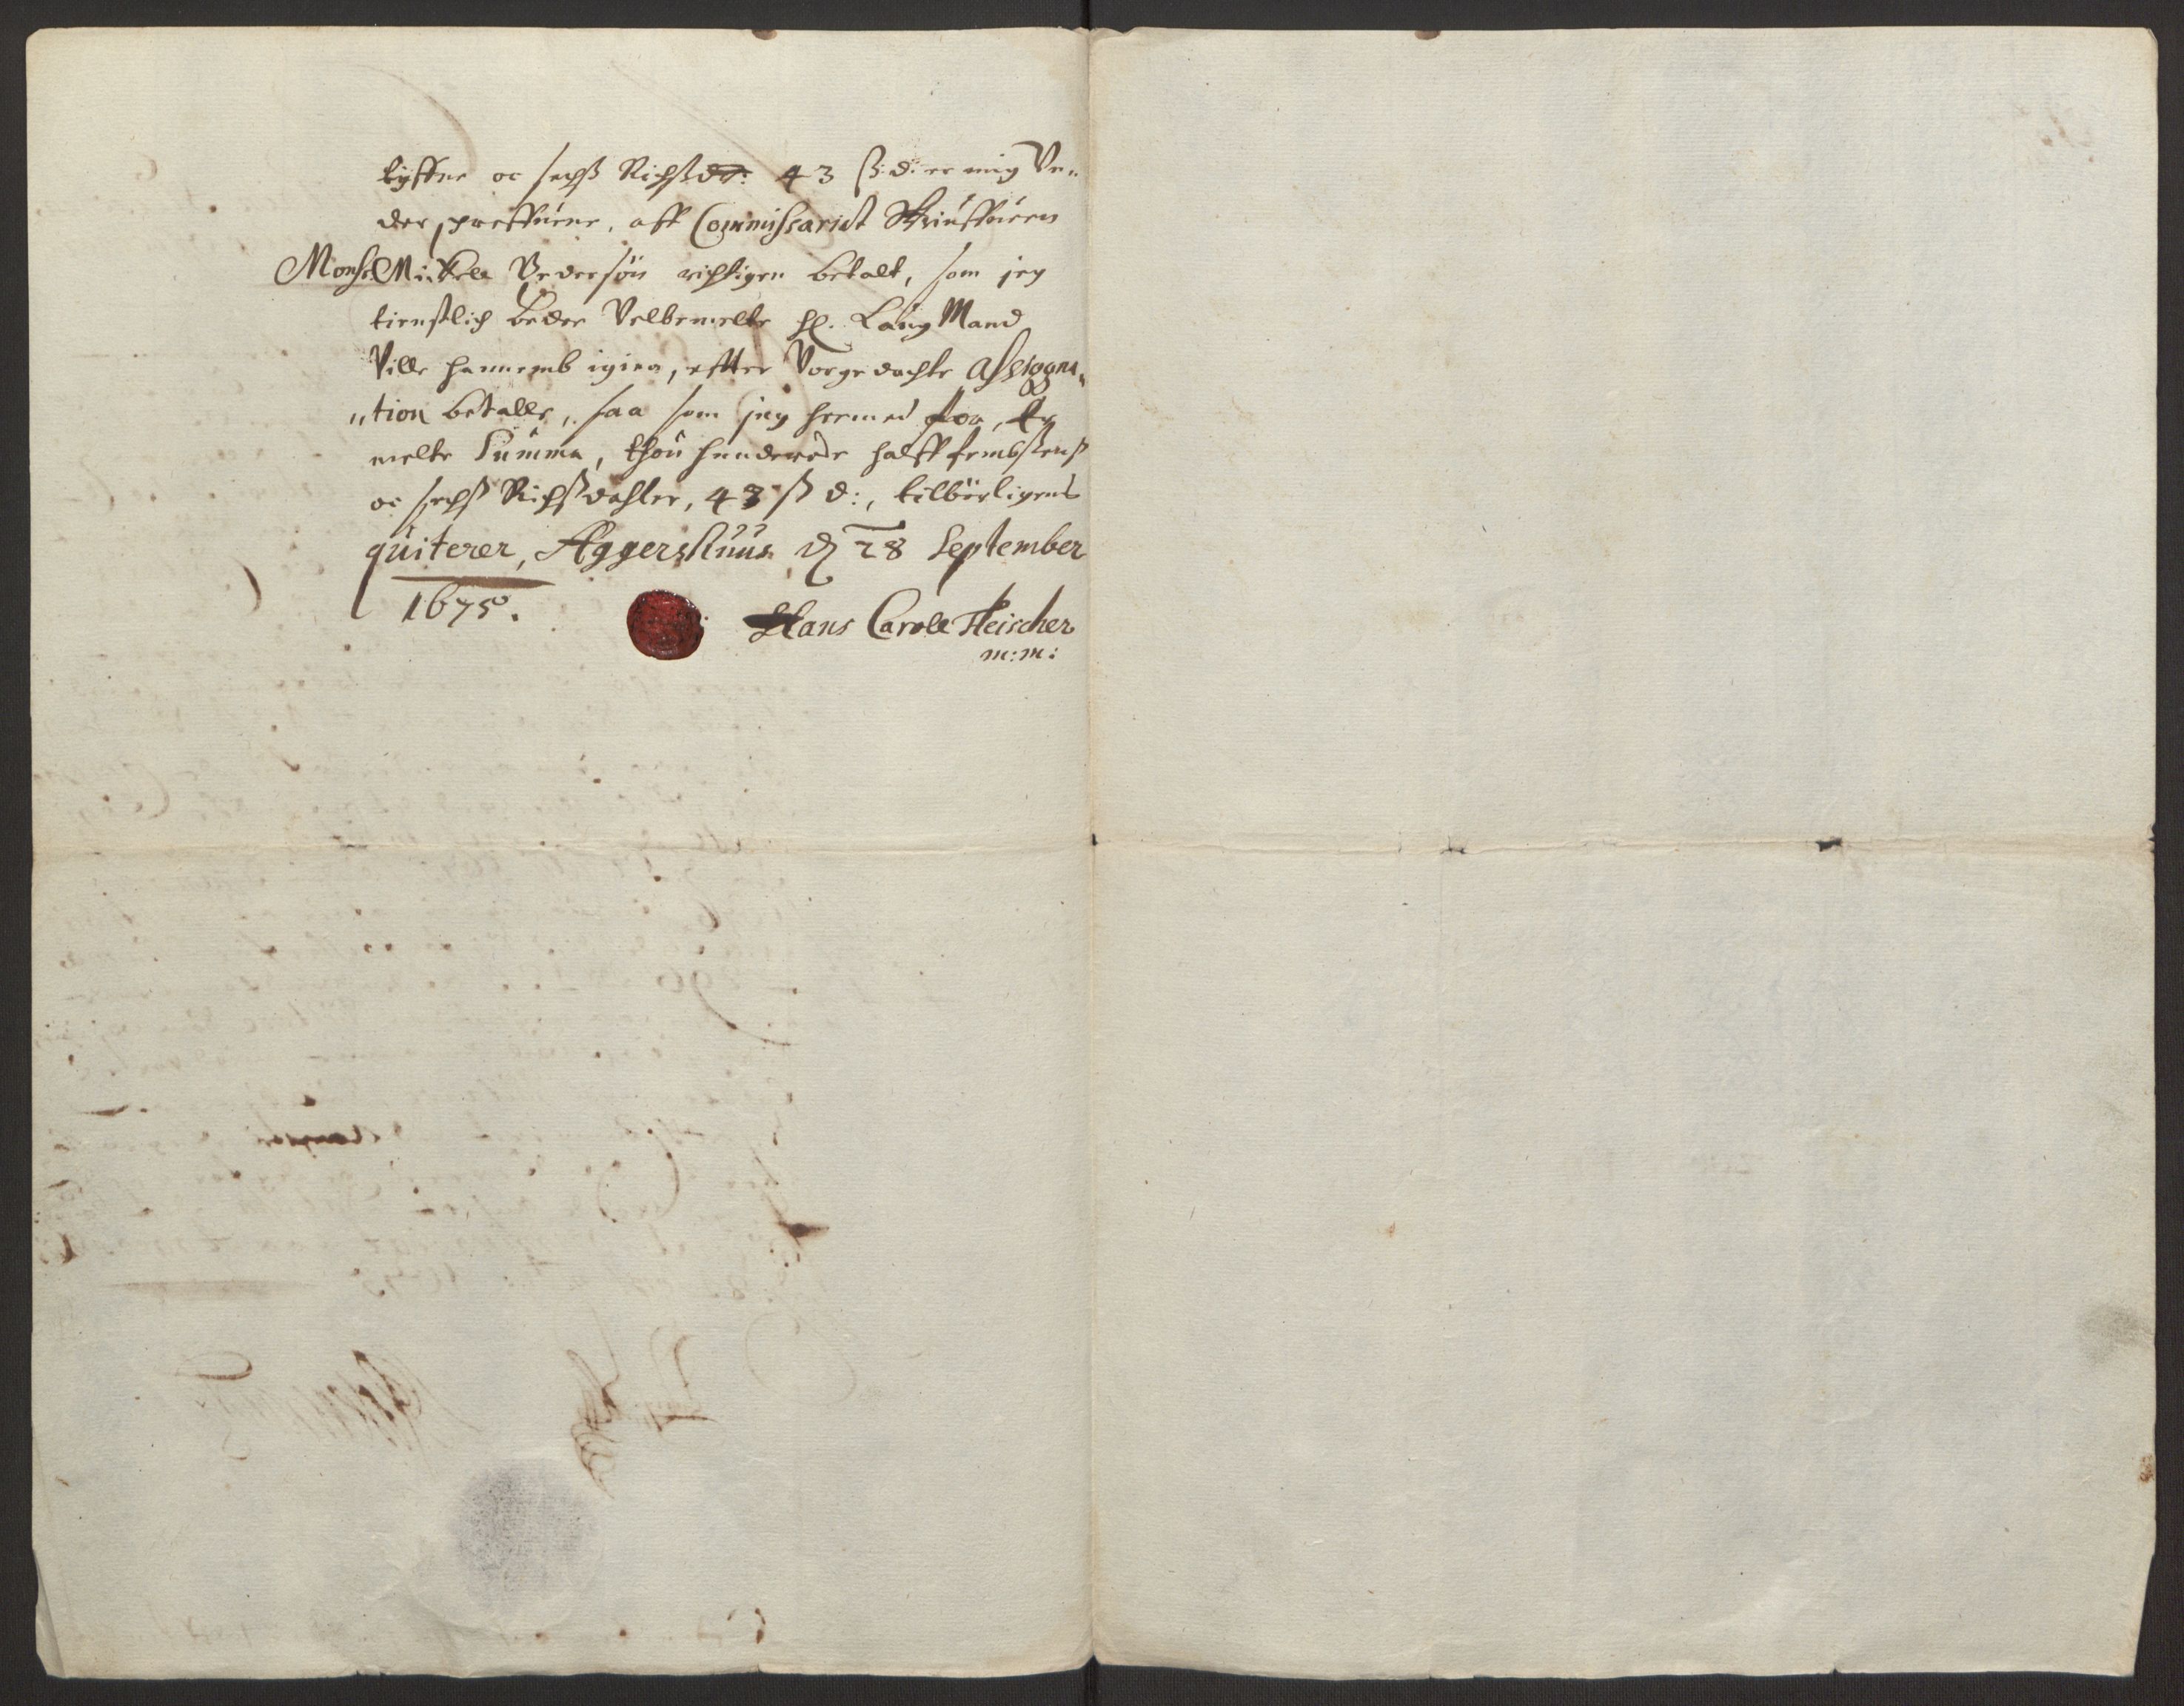 tyffue oc sechs Richsdr: 43 ß: d: er mig Un„
der, aff Commissariat Skriuffueren
Mons: Mickell Pedersøn richtigen betalt, som jeg
tienstlich beder Velbemelte Hl. Laugmand
Ville hannemb igien, effter Vorgedachte assigna„
„tion betalle, saa som jeg hermed for
melte Summa, thou hunderede halff fembsens
oc sechs Richsdahler, 43 ß d:, tilbörligens
quiterer, Aggershuus d 28 September
1675.
Hans Caroll Fleischer
m:m: